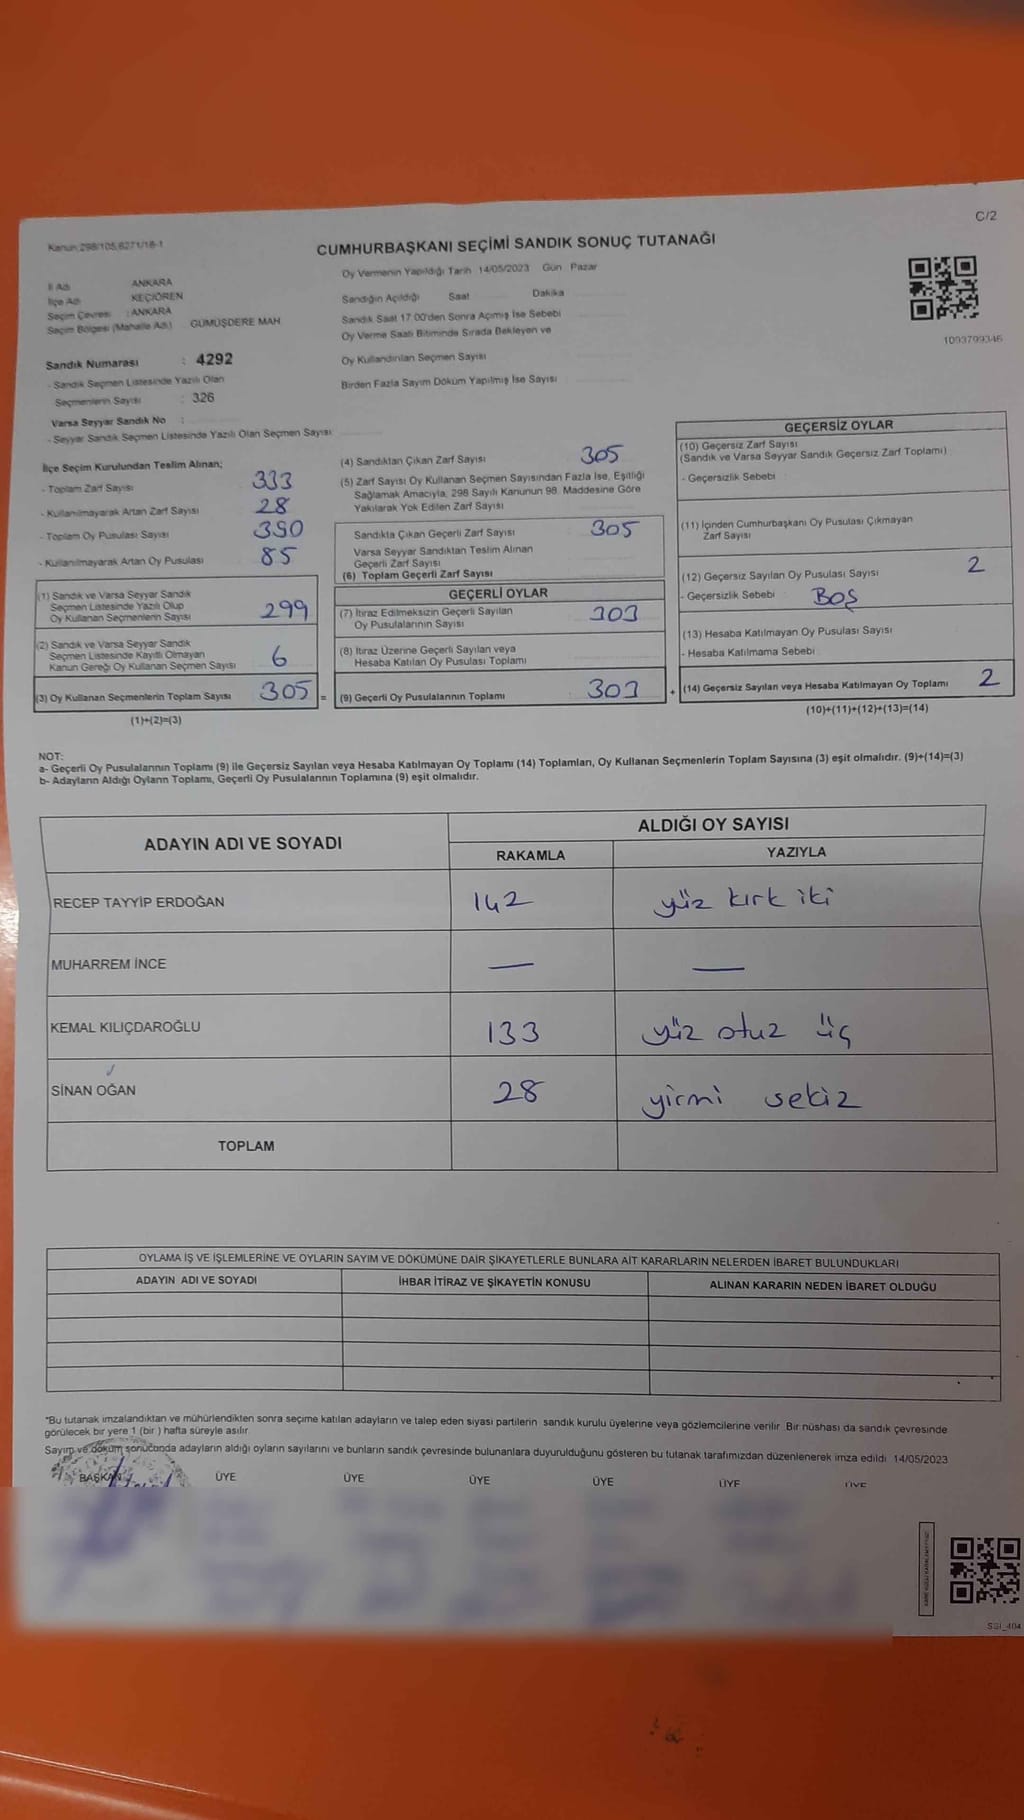 C/2
Kanun 298/105,6271/18-1
CUMHURBAŞKANI SEÇİMİ SANDIK SONUÇ TUTANAĞI
İl Adı : ANKARA
İlçe Adı : KEÇİÖREN
Seçim Çevresi : ANKARA
Seçim Bölgesi (Mahalle Adı) : GÜMÜŞDERE MAH
Oy Vermenin Yapıldığı Tarih 14/05/2023 Gün Pazar
Sandığın Açıldığı Saat Dakika
Sandık Saat 17:00'den Sonra Açımış İse Sebebi
Oy Verme Saati Bitiminde Sırada Bekleyen ve
Oy Kullandırılan Seçmen Sayısı
Birden Fazla Sayım Döküm Yapılmış İse Sayısı
1093799346
Sandık Numarası : 4292
- Sandık Seçmen Listesinde Yazılı Olan
Seçmenlerin Sayısı : 326
Varsa Seyyar Sandık No :
- Seyyar Sandık Seçmen Listesinde Yazılı Olan Seçmen Sayısı
İlçe Seçim Kurulundan Teslim Alınan;
- Toplam Zarf Sayısı 333
- Kullanılmayarak Artan Zarf Sayısı 28
- Toplam Oy Pusulası Sayısı 390
- Kullanılmayarak Artan Oy Pusulası 85
(1) Sandık ve Varsa Seyyar Sandık
Seçmen Listesinde Yazılı Olup
Oy Kullanan Seçmenlerin Sayısı 299
(2) Sandık ve Varsa Seyyar Sandık
Seçmen Listesinde Kayıtlı Olmayan
Kanun Gereği Oy Kullanan Seçmen Sayısı 6
(3) Oy Kullanan Seçmenlerin Toplam Sayısı 305 =
(1)+(2)=(3)
(4) Sandıktan Çıkan Zarf Sayısı 305
(5) Zarf Sayısı Oy Kullanan Seçmen Sayısından Fazla İse, Eşitliği
Sağlamak Amacıyla, 298 Sayılı Kanunun 98. Maddesine Göre
Yakılarak Yok Edilen Zarf Sayısı
Sandıkta Çıkan Geçerli Zarf Sayısı 305
Varsa Seyyar Sandıktan Teslim Alınan
Geçerli Zarf Sayısı
(6) Toplam Geçerli Zarf Sayısı
GEÇERLİ OYLAR
(7) İtiraz Edilmeksizin Geçerli Sayılan
Oy Pusulalarının Sayısı 303
(8) İtiraz Üzerine Geçerli Sayılan veya
Hesaba Katılan Oy Pusulası Toplamı
(9) Geçerli Oy Pusulalarının Toplamı 303 +
GEÇERSİZ OYLAR
(10) Geçersiz Zarf Sayısı
(Sandık ve Varsa Seyyar Sandık Geçersiz Zarf Toplamı)
- Geçersizlik Sebebi
(11) İçinden Cumhurbaşkanı Oy Pusulası Çıkmayan
Zarf Sayısı
(12) Geçersiz Sayılan Oy Pusulası Sayısı 2
- Geçersizlik Sebebi BOŞ
(13) Hesaba Katılmayan Oy Pusulası Sayısı
- Hesaba Katılmama Sebebi
(14) Geçersiz Sayılan veya Hesaba Katılmayan Oy Toplamı 2
(10)+(11)+(12)+(13)=(14)
NOT:
a- Geçerli Oy Pusulalarının Toplamı (9) ile Geçersiz Sayılan veya Hesaba Katılmayan Oy Toplamı (14) Toplamları, Oy Kullanan Seçmenlerin Toplam Sayısına (3) eşit olmalıdır. (9)+(14)=(3)
b- Adayların Aldığı Oyların Toplamı, Geçerli Oy Pusulalarının Toplamına (9) eşit olmalıdır.
ADAYIN ADI VE SOYADI
ALDIĞI OY SAYISI
RAKAMLA YAZIYLA
RECEP TAYYİP ERDOĞAN 142 yüz kırk iki
MUHARREM İNCE — —
KEMAL KILIÇDAROĞLU 133 yüz otuz üç
SİNAN OĞAN 28 yirmi sekiz
TOPLAM
OYLAMA İŞ VE İŞLEMLERİNE VE OYLARIN SAYIM VE DÖKÜMÜNE DAİR ŞİKAYETLERLE BUNLARA AİT KARARLARIN NELERDEN İBARET BULUNDUKLARI
ADAYIN ADI VE SOYADI İHBAR İTİRAZ VE ŞİKAYETİN KONUSU ALINAN KARARIN NEDEN İBARET OLDUĞU
*Bu tutanak imzalandıktan ve mühürlendikten sonra seçime katılan adayların ve talep eden siyasi partilerin sandık kurulu üyelerine veya gözlemcilerine verilir. Bir nüshası da sandık çevresinde
görülecek bir yere 1 (bir ) hafta süreyle asılır.
Sayım ve döküm sonucunda adayların aldığı oyların sayılarını ve bunların sandık çevresinde bulunanlara duyurulduğunu gösteren bu tutanak tarafımızdan düzenlenerek imza edildi. 14/05/2023
BAŞKAN ÜYE ÜYE ÜYE ÜYE ÜYE ÜYE